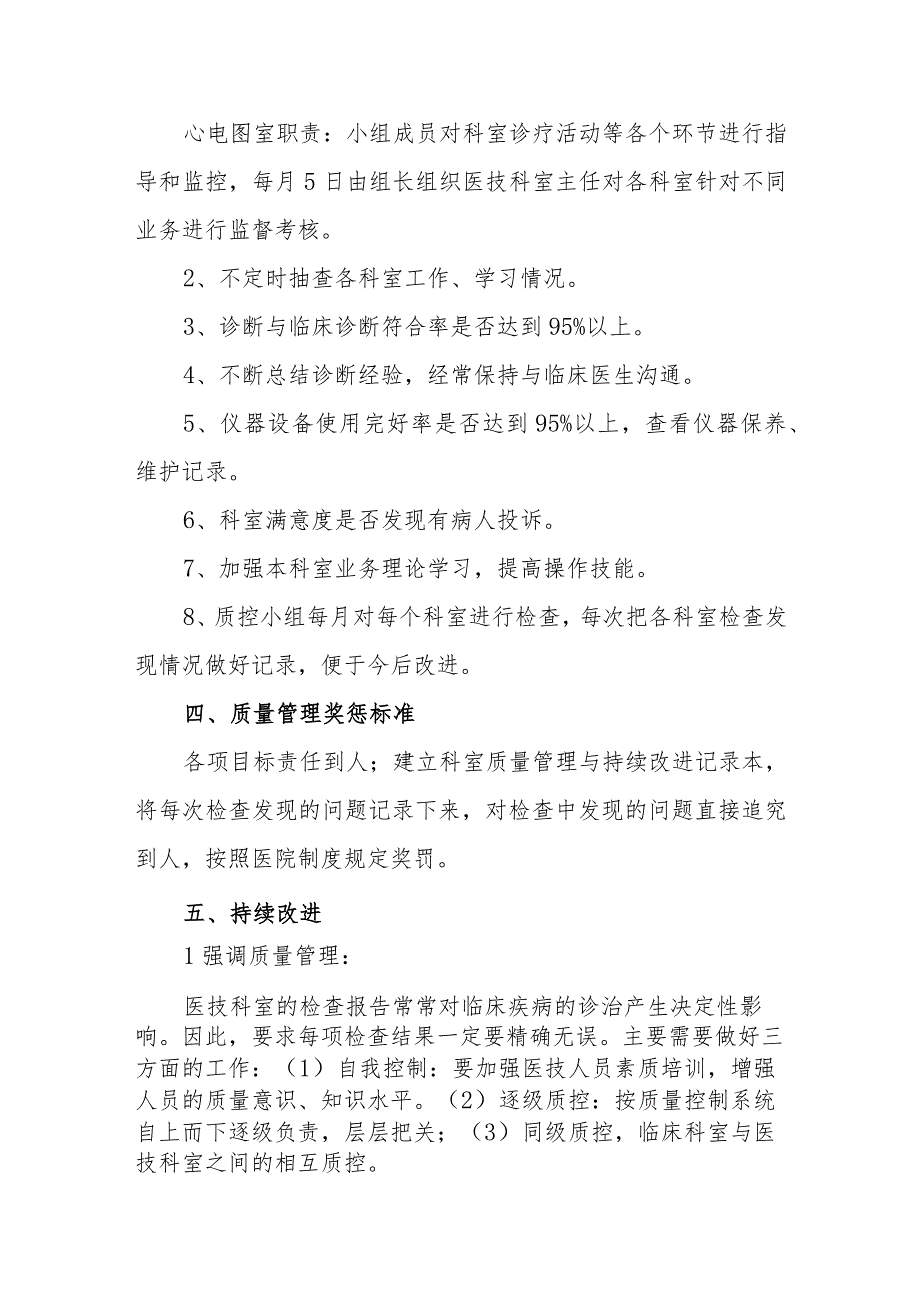 心电图室职责：小组成员对科室诊疗活动等各个环节进行指
导和监控，每月5日由组长组织医技科室主任对各科室针对不同
业务进行监督考核。
2、不定时抽查各科室工作、学习情况。
3、诊断与临床诊断符合率是否达到95%以上。
4、不断总结诊断经验，经常保持与临床医生沟通。
5、仪器设备使用完好率是否达到95%以上，查看仪器保养、
维护记录。
6、科室满意度是否发现有病人投诉。
7、加强本科室业务理论学习，提高操作技能。
8、质控小组每月对每个科室进行检查，每次把各科室检查发
现情况做好记录，便于今后改进。
四、质量管理奖惩标准
各项目标责任到人；建立科室质量管理与持续改进记录本，
将每次检查发现的问题记录下来，对检查中发现的问题直接追究
到人，按照医院制度规定奖罚。
五、持续改进
1强调质量管理：
医技科室的检查报告常常对临床疾病的诊治产生决定性影
响。因此，要求每项检查结果一定要精确无误。主要需要做好三
方面的工作：（1）自我控制：要加强医技人员素质培训，增强
人员的质量意识、知识水平。（2）逐级质控：按质量控制系统
自上而下逐级负责，层层把关；（3）同级质控，临床科室与医
技科室之间的相互质控。